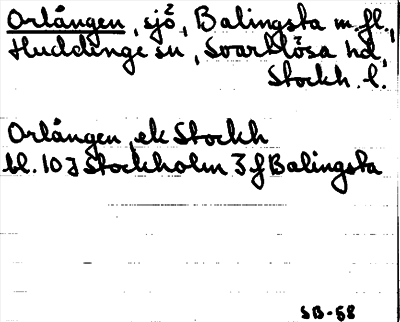 Orlången, sjö, Balingsta m fl.,
Huddinge sn, Svartlösa hd,
Stockh. l.
Orlången, ek Stockh
bl. 10 I Stockholm 3 f Balingsta
SB-68